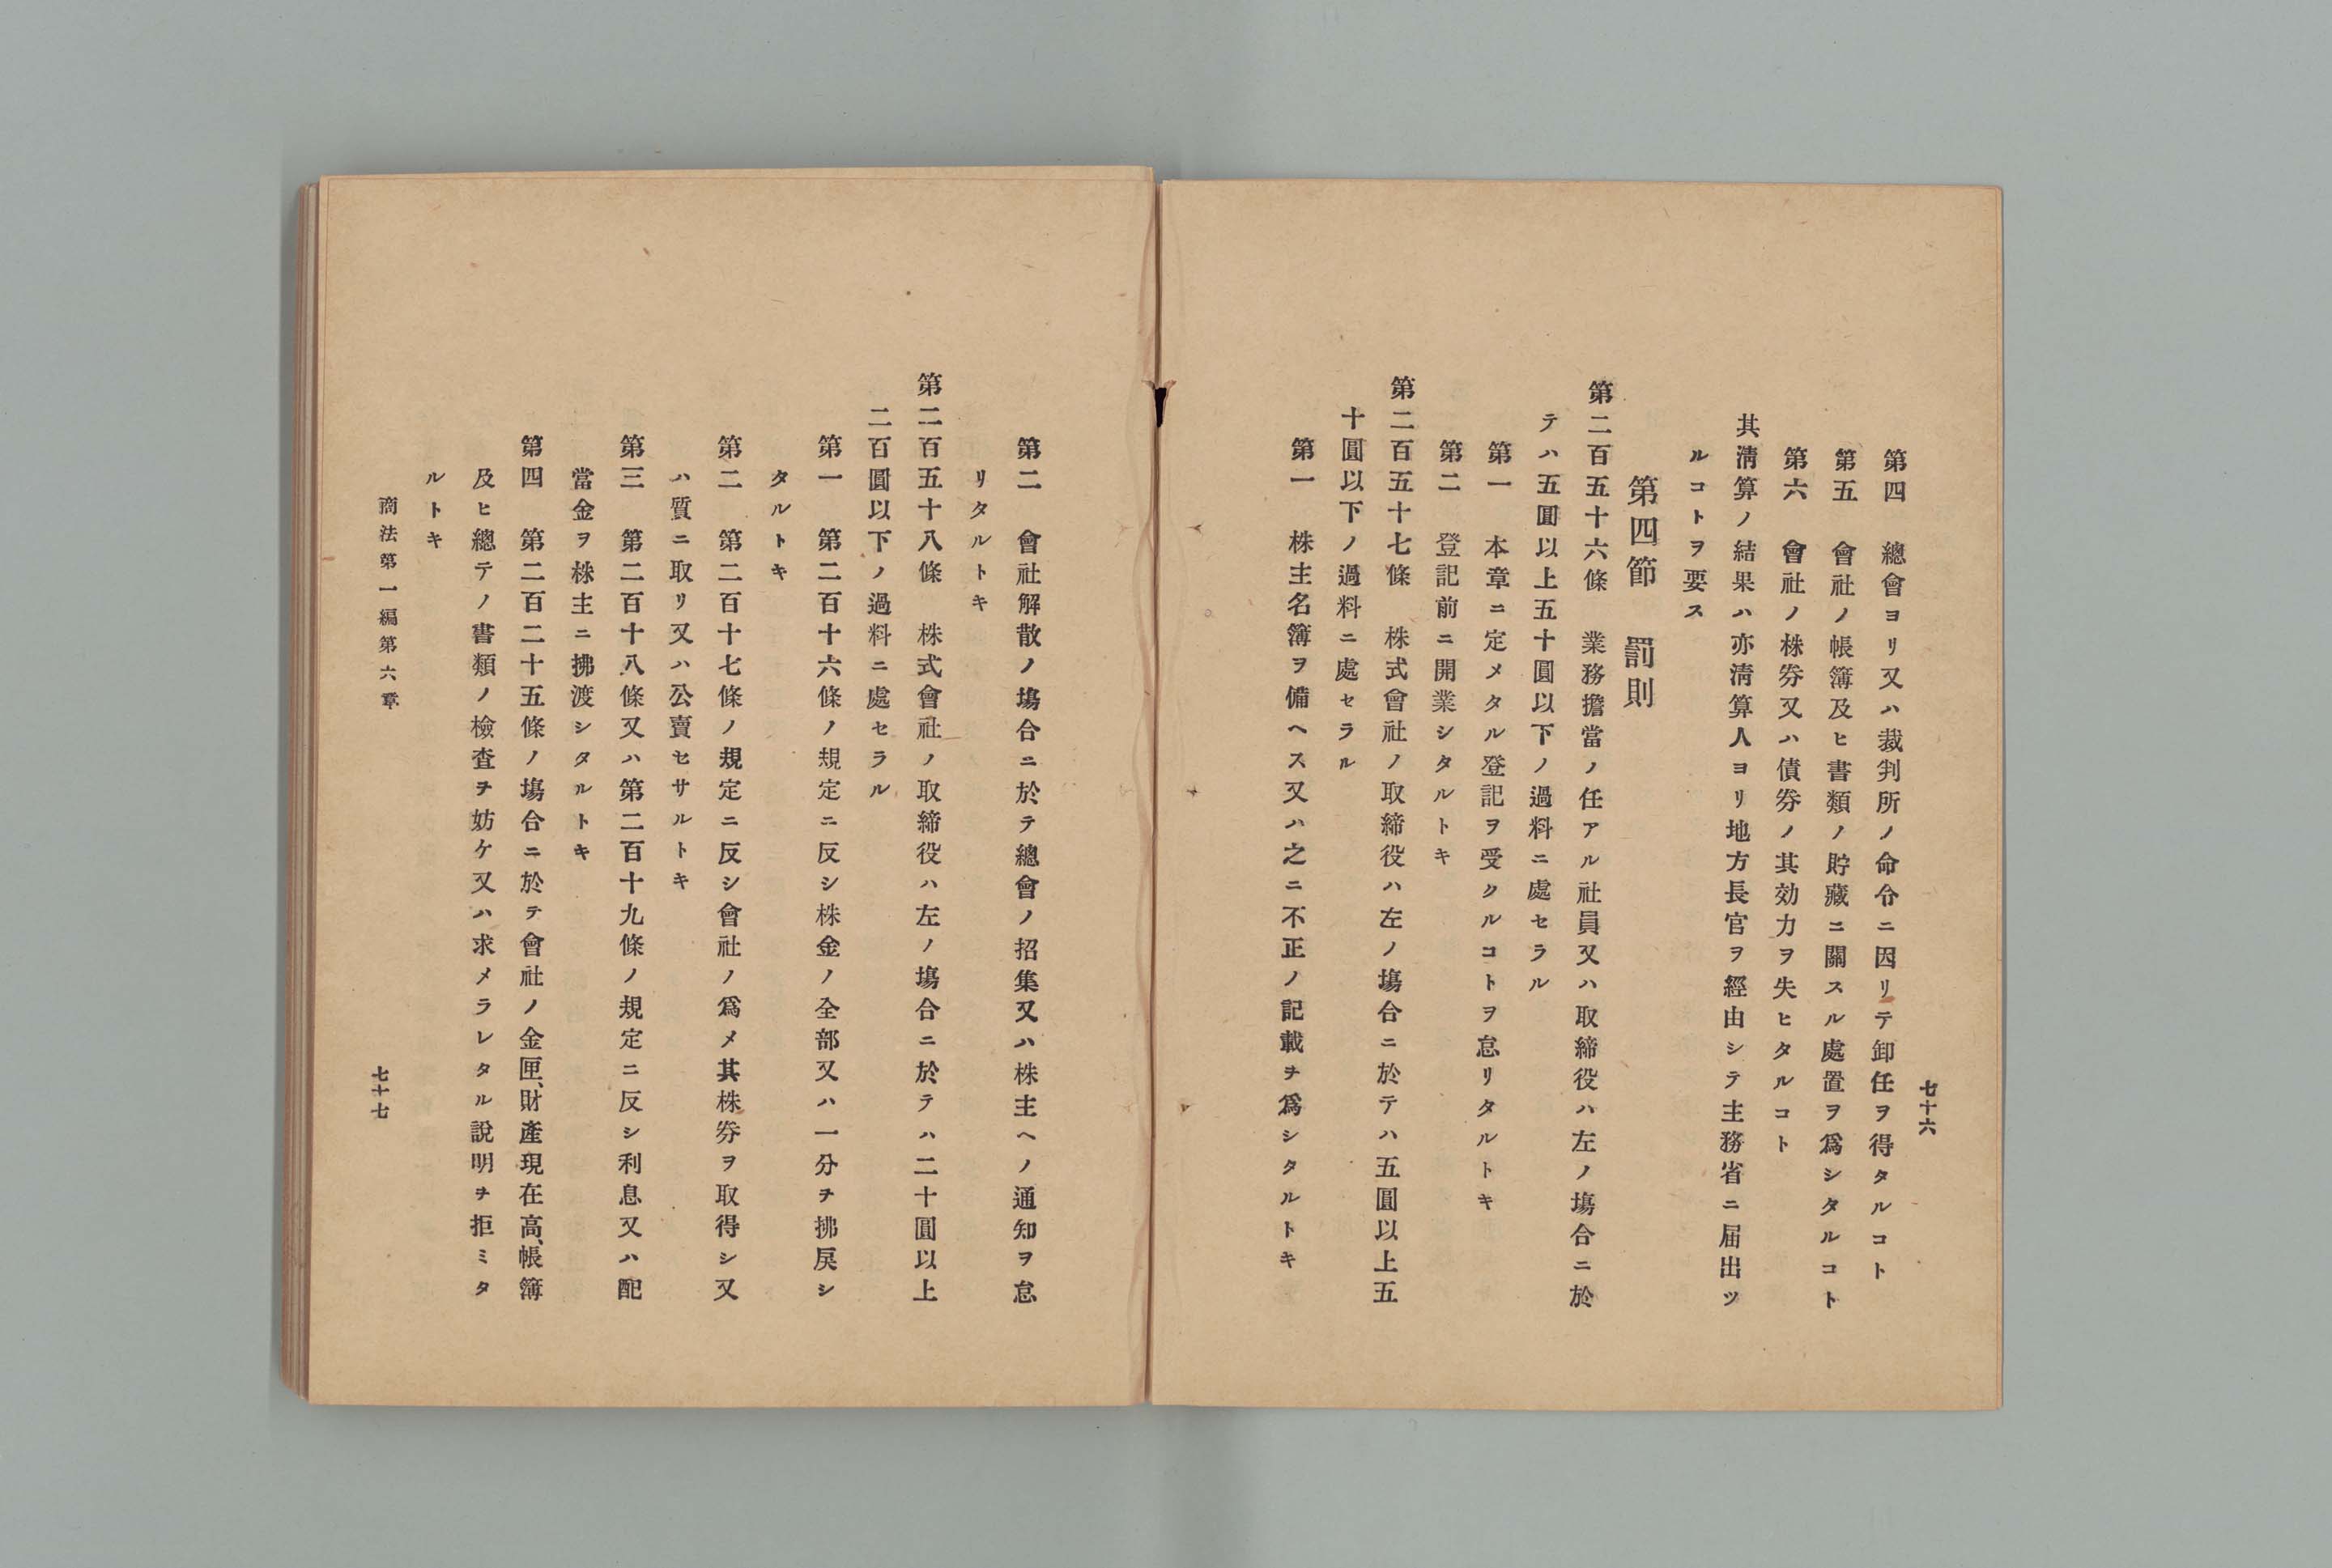 七十六
第四　總會ヨリ又ハ裁判所ノ命令ニ因リテ卸任ヲ得タルコト
第五　會社ノ帳簿及ヒ書類ノ貯藏ニ關スル處置ヲ爲シタルコト
第六　會社ノ株券又ハ債券ノ其効力ヲ失ヒタルコト
其淸算ノ結果ハ亦淸算人ヨリ地方長官ヲ經由シテ主務省ニ届出ツ
ルコトヲ要ス
第四節　罰則
第二百五十六條　業務擔當ノ任アル社員又ハ取締役ハ左ノ塲合ニ於
テハ五圓以上五十圓以下ノ過料ニ處セラル
第一　本章ニ定メタル登記ヲ受クルコトヲ怠リタルトキ
第二　登記前ニ開業シタルトキ
第二百五十七條　株式會社ノ取締役ハ左ノ塲合ニ於テハ五圓以上五
十圓以下ノ過料ニ處セラル
第一　株主名簿ヲ備ヘス又ハ之ニ不正ノ記載ヲ爲シタルトキ
第二　會社解散ノ塲合ニ於テ總會ノ招集又ハ株主ヘノ通知ヲ怠
リタルトキ
第二百五十八條　株式會社ノ取締役ハ左ノ塲合ニ於テハ二十圓以上
二百圓以下ノ過料ニ處セラル
第一　第二百十六條ノ規定ニ反シ株金ノ全部又ハ一分ヲ拂戾シ
タルトキ
第二　第二百十七條ノ規定ニ反シ會社ノ爲メ其株券ヲ取得シ又
ハ質ニ取リ又ハ公賣セサルトキ
第三　第二百十八條又ハ第二百十九條ノ規定ニ反シ利息又ハ配
當金ヲ株主ニ拂渡シタルトキ
第四　第二百二十五條ノ塲合ニ於テ會社ノ金匣、財產現在高、帳簿
及ヒ總テノ書類ノ檢査ヲ妨ケ又ハ求メラレタル說明ヲ拒ミタ
ルトキ
商法第一編第六章
七十七